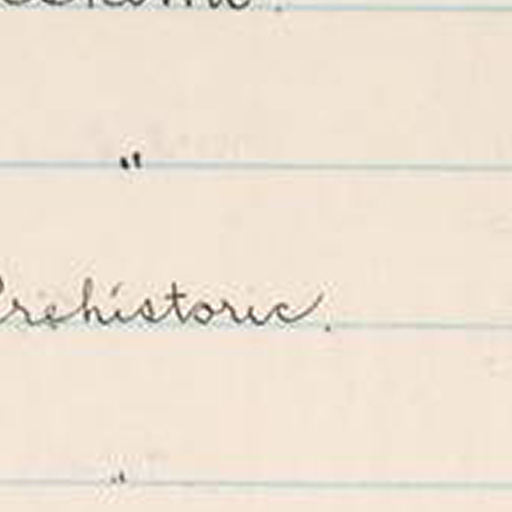 "
Prehistoric.
"